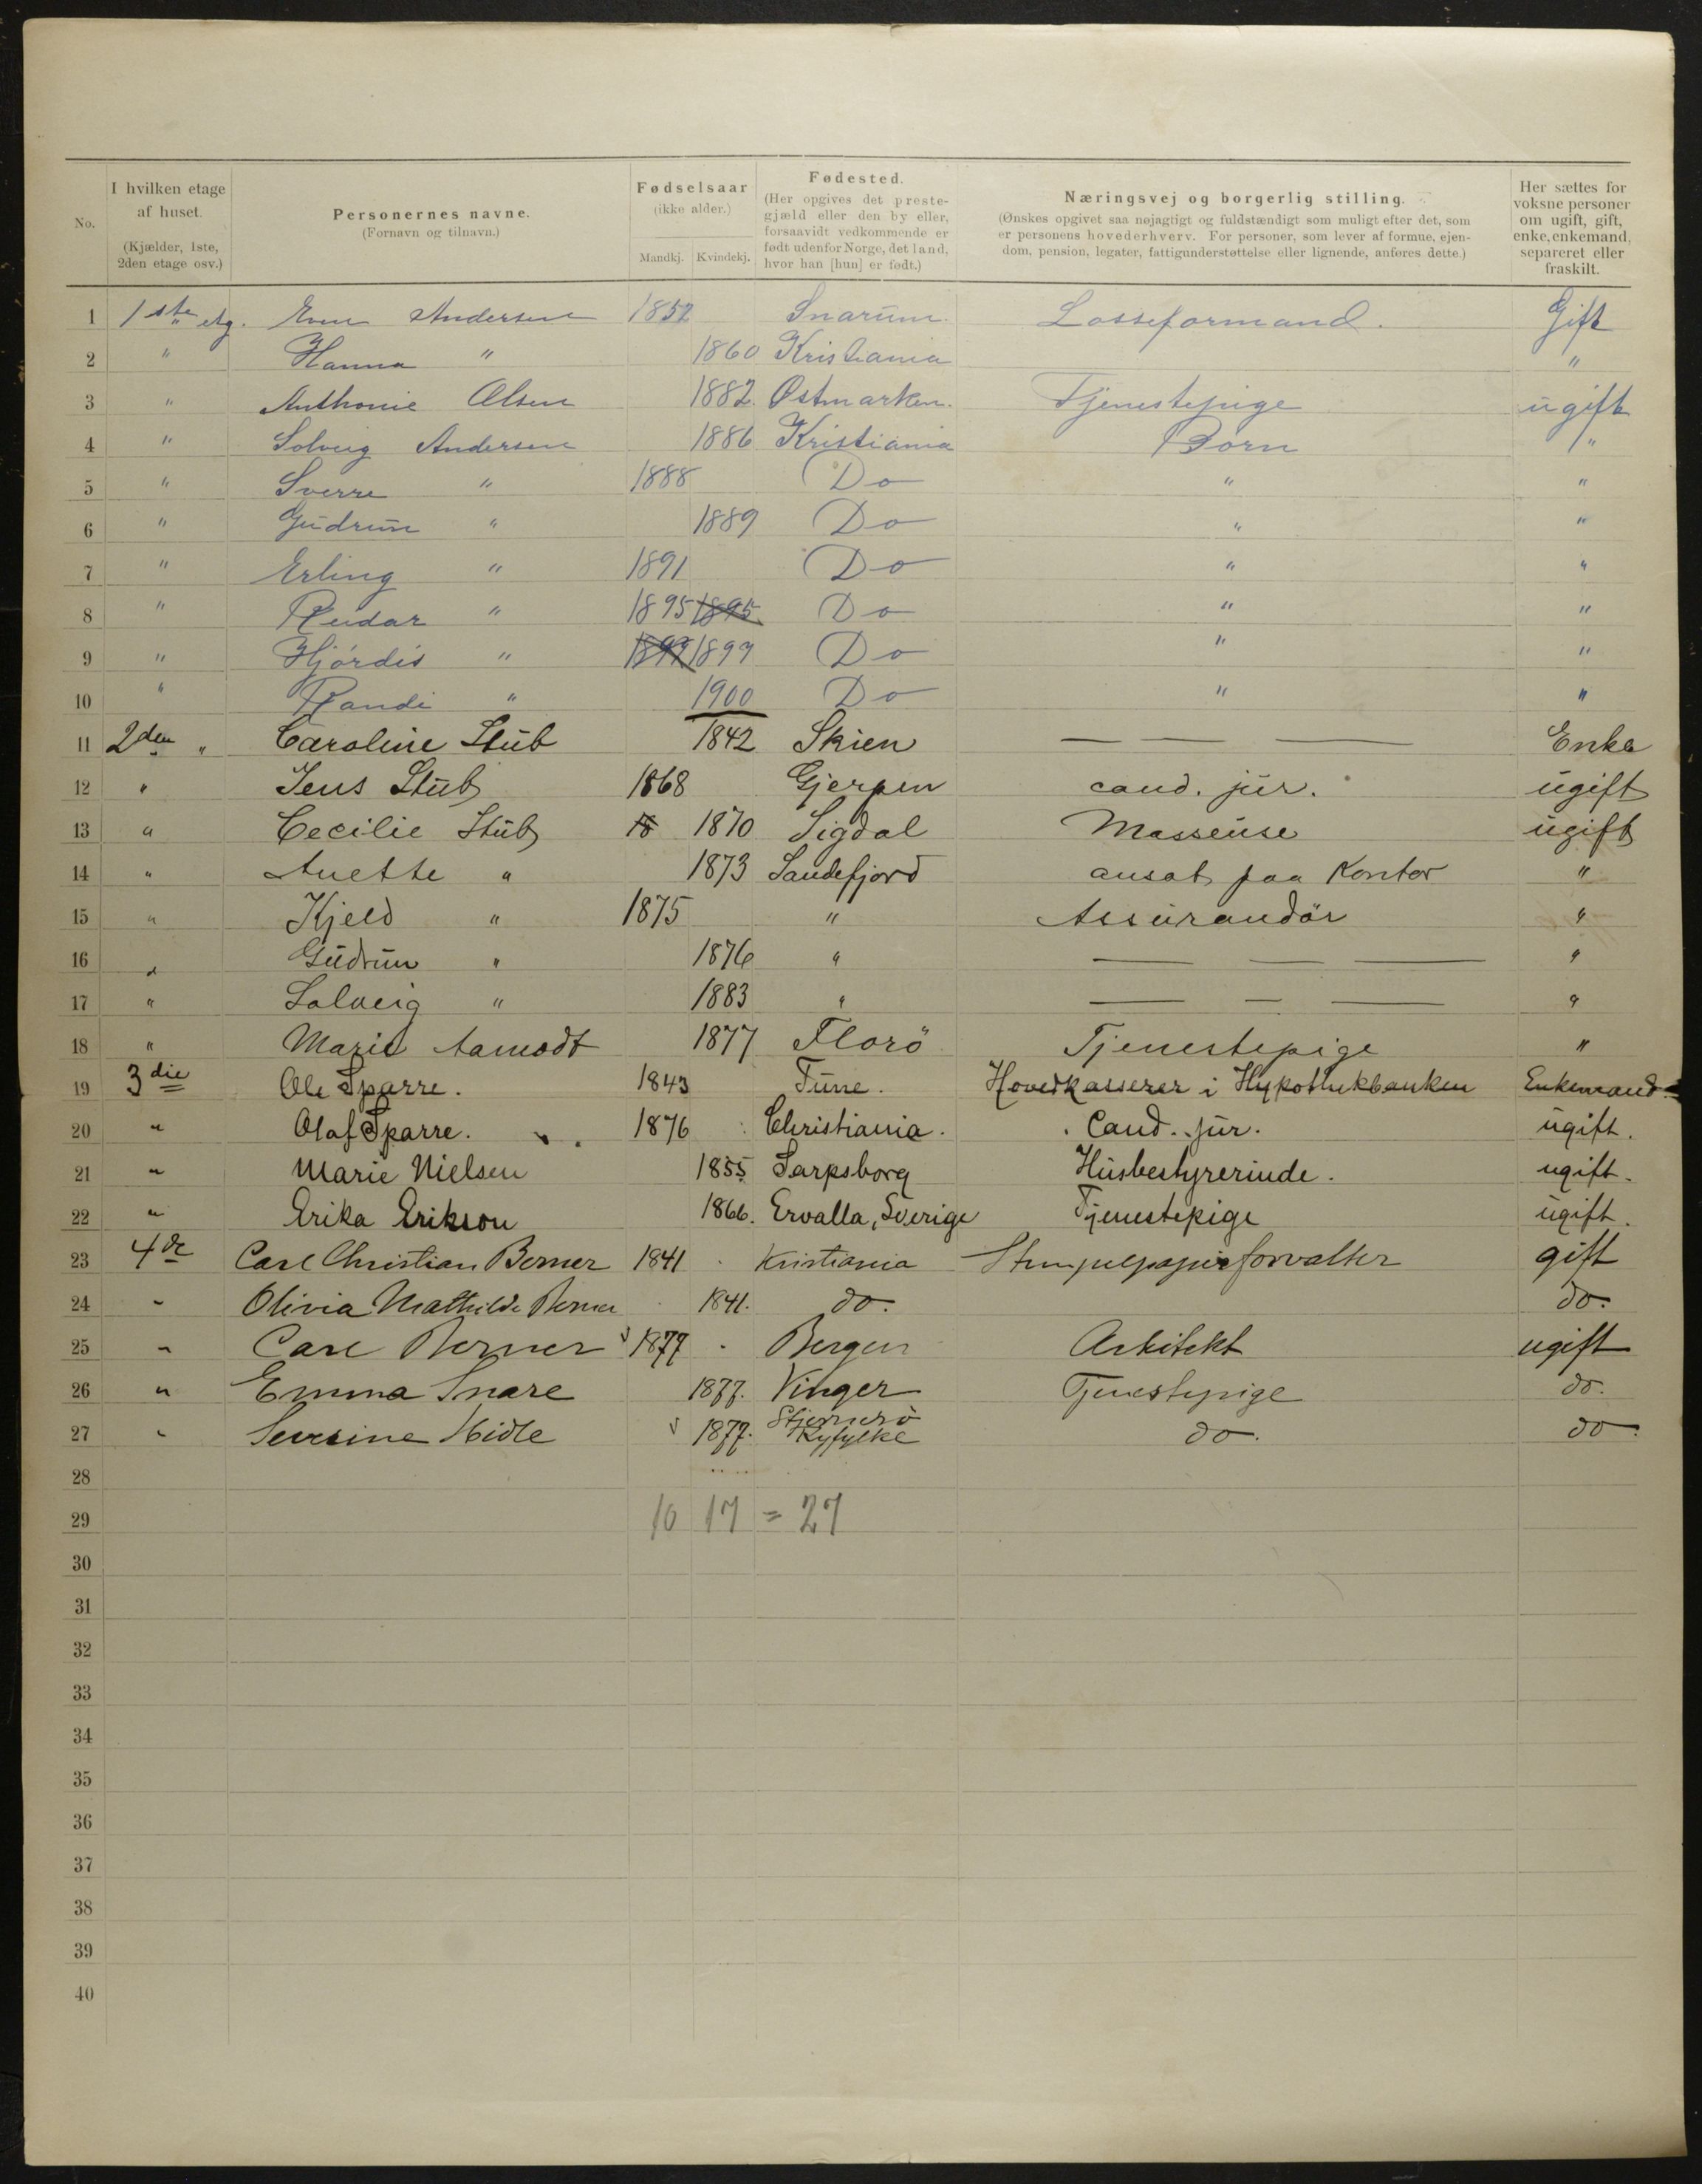 No. | I hvilken etage af huset. (Kjælder, 1ste, 2den etage osv.) | Personernes navne. (Fornavn og tilnavn.) | Fødselsaar (ikke alder.) Mandkj. Kvindekj. | Fødested. (Her opgives det prestegjæld eller den by eller, forsaavidt vedkommende er født udenfor Norge, det land, hvor han [hun] er født.) | Næringsvej og borgerlig stilling. (Ønskes opgivet saa nøjagtigt og fuldstændigt som muligt efter det, som er personens hovederhverv. For personer, som lever af formue, ejendom, pension, legater, fattigunderstøttelse eller lignende, anføres dette.) | Her sættes for voksne personer om ugift, gift, enke, enkemand, separeret eller fraskilt.
1 1ste etg. Even Andersen 1852 Snarum Losseformand. Gift
2 " Hanna " 1860 Kristiania "
3 " Anthonie Olsen 1882. Østmarken. Tjenestepige ugift
4 " Solveig Andersen 1886 Kristiania Børn "
5 " Sverre " 1888 Do " "
6 " Gudrun " 1889 Do " "
7 " Erling " 1891 Do " "
8 " Reidar " 1895 1895 Do " "
9 " Hjördis " 1899 1899 Do " "
10 " Randi " 1900 Do " "
11 2den " Caroline Stub 1842 Skien — — — Enke
12 " Jens Stub 1868 Gjerpen cand. jur. ugift
13 " Cecilie Stub 18 1870 Sigdal Masseuse ugift
14 " Anette " 1873 Sandefjord ansat paa Kontor "
15 " Kjeld " 1875 " Assurandör "
16 " Gudrun " 1876 " — — — "
17 " Solveig " 1883 " — — — "
18 " Marie Aamodt 1877 Florö Tjenestepige "
19 3die Ole Sparre. 1843 Tune. Hovedkasserer i Hypothekbanken Enkemand.
20 " Olaf Sparre. 1876 Christiania. Cand. jur. ugift.
21 " Marie Nielsen 1855 Sarpsborg Husbestyrerinde. ugift.
22 " Erika Erikson 1866. Ervalla, Sverige Tjenestepige ugift.
23 4de Carl Christian Berner 1841 Kristiania Stempelpapirforvalter gift
24 " Olivia Mathilde Berner 1841. do. do.
25 " Carl Berner 1877 Bergen Arkitekt ugift
26 " Emma Snare 1877. Vinger Tjenestepige do.
27 " Severine Hidle 1877. Stjernerö Ryfylke do. do.
28
29 10 17 = 27
30
31
32
33
34
35
36
37
38
39
40